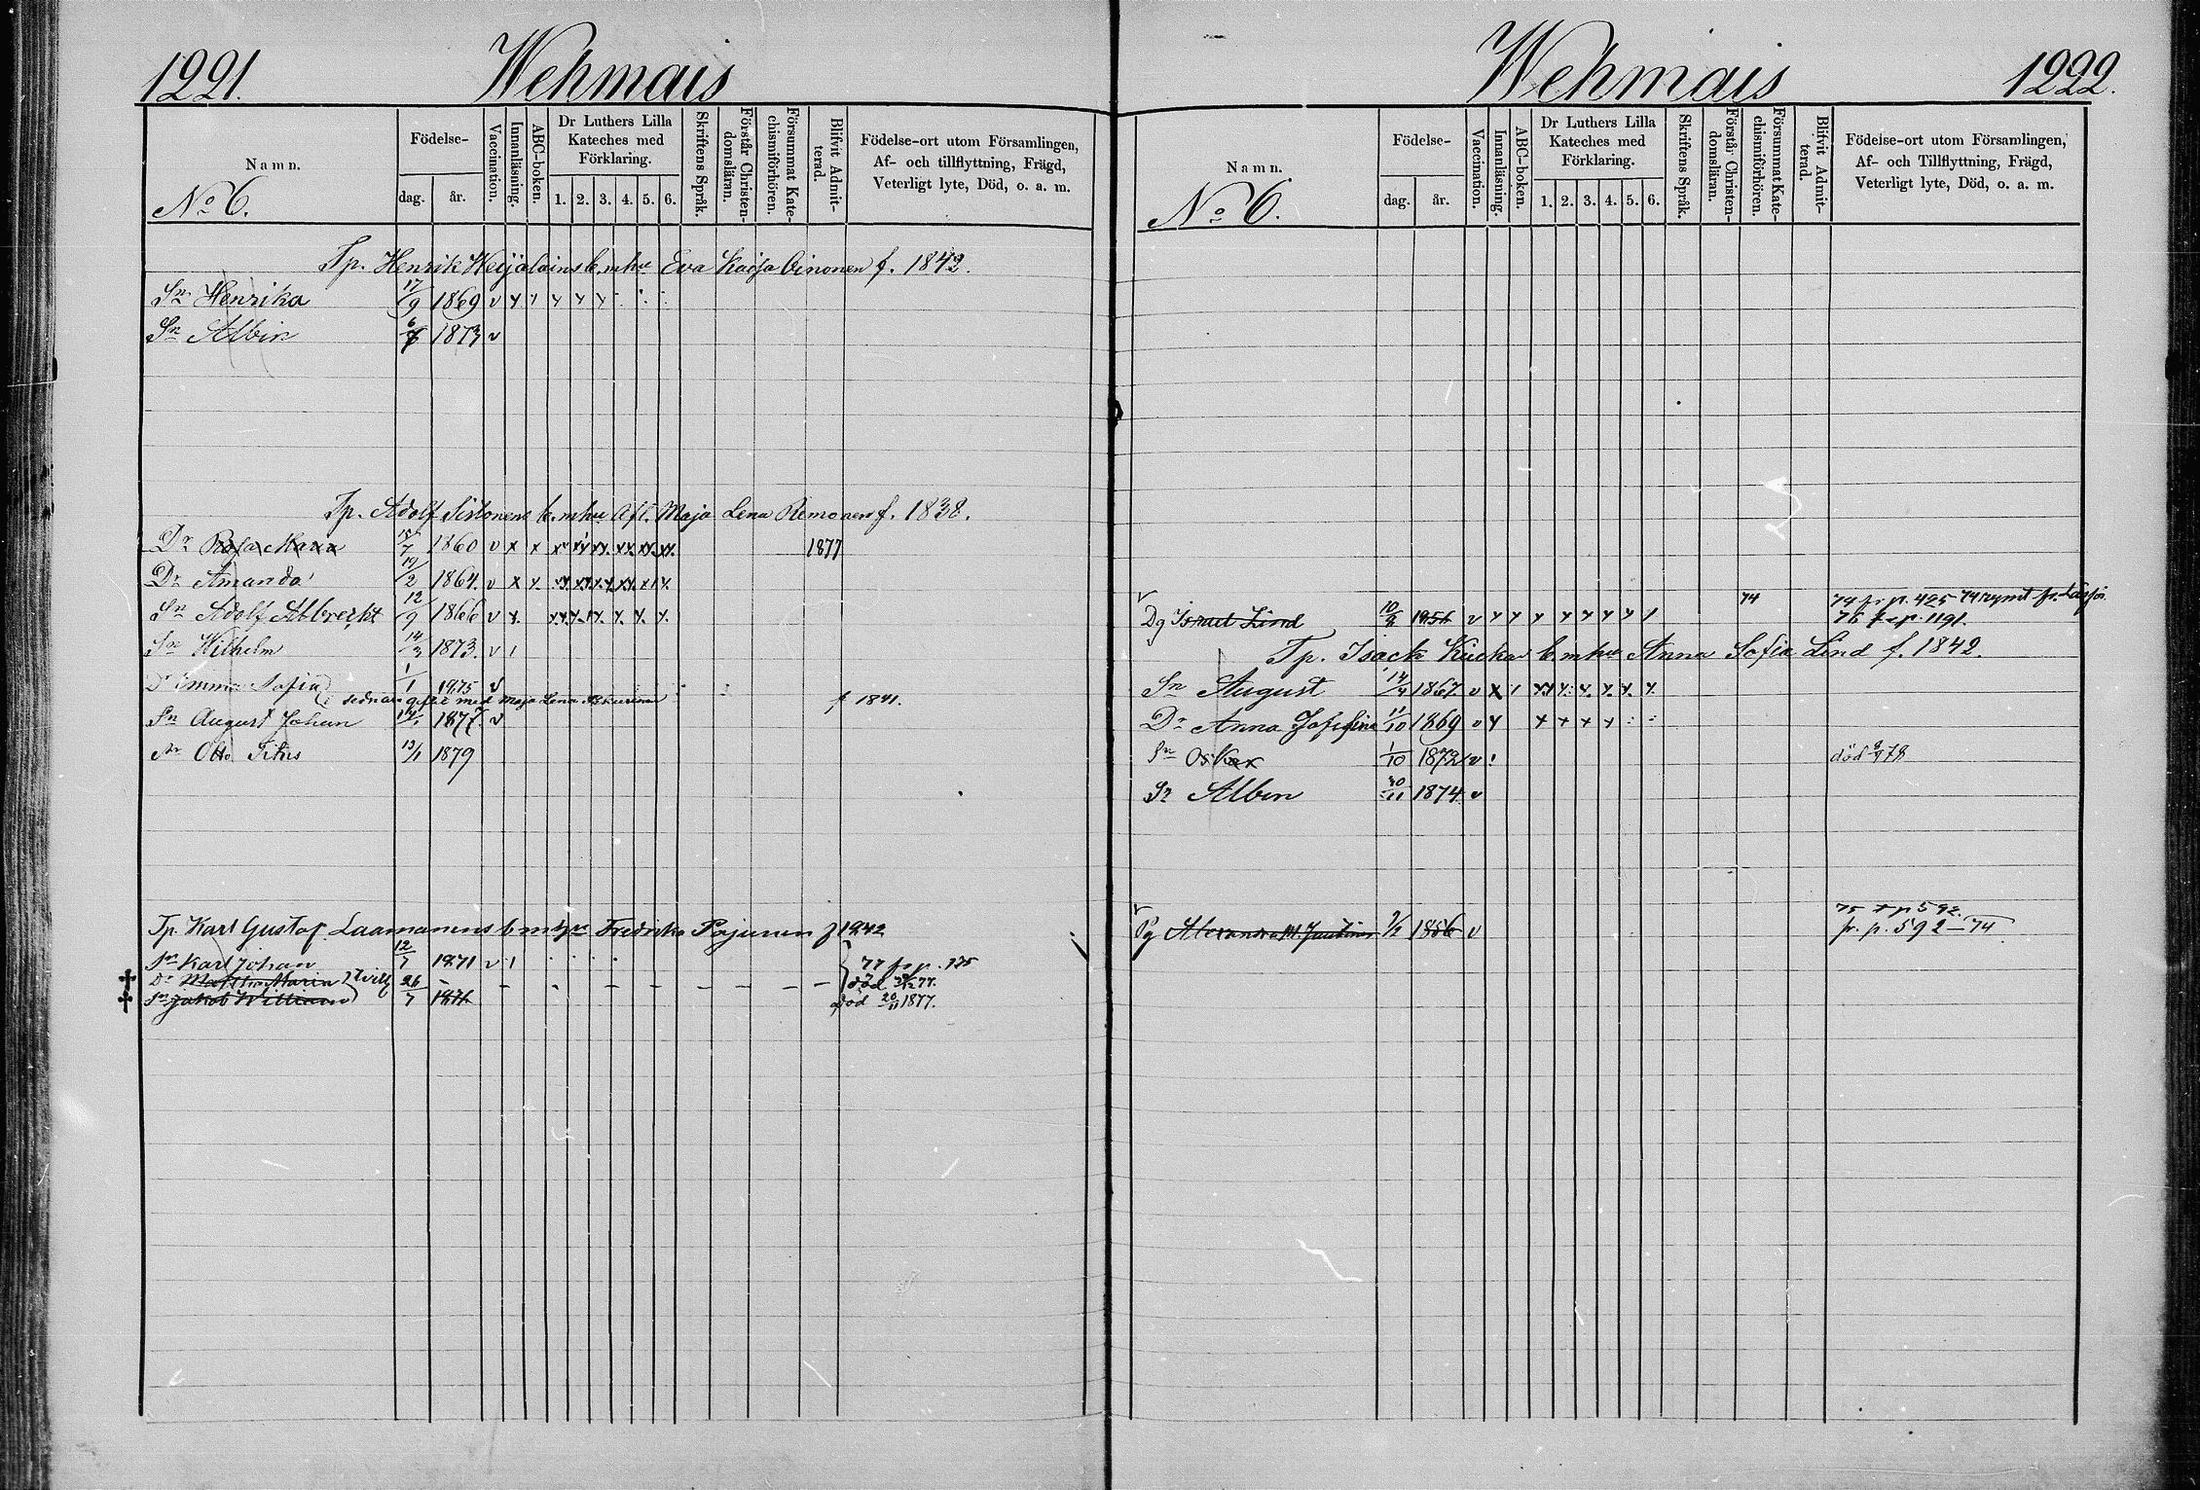 1221. Wehmais
Namn.
No 6.
Födelse-
dag. år.
Vaccination.
Innanläsning.
ABC-boken.
Dr Luthers Lilla
Kateches med
Förklaring.
1. 2. 3. 4. 5. 6.
Skriftens Språk.
Förstår Christen-
domsläran.
Försummat Kate-
chismiförhören.
Blifvit Admit-
terad.
Födelse-ort utom Församlingen,
Af- och tillflyttning, Frägd,
Veterligt lyte, Död, o. a. m.
Tp. Henrik b. m hu Eva Kaisa Oinonen f. 1842.
Sn Henrika 17/9 1869 v
Sn Albin 1873 v
Tp. Adolf Sistonens b. m hu Afl. Maja Lena f. 1838.
Dr Rosa Maria 1860 v 1877
Dr Amanda 19/2 1864. v
Sn Adolf Albrecht 12/9 1866 v
Sn Wilhelm 14/3 1873. v
Dr Emma Sofia 1/1 1875 v
sednare gift med Maja Lena f 1841.
Sn August Johan 1877. v
Sn Otto Titus 13/1 1879
Tp. Karl Gustaf Laamanens b m hu Fredrika Pajunen f 1842
Sn Karl Johan 12/7 1871 v
Dr Maria 26
Sn Jakob William 7 1876
77 fr p. 175
död 77.
död 1877.
Wehmais 1222.
Namn.
No 6.
Födelse-
dag. år.
Vaccination.
Innanläsning.
ABC-boken.
Dr Luthers Lilla
Kateches med
Förklaring.
1. 2. 3. 4. 5. 6.
Skriftens Språk.
Förstår Christen-
domsläran.
Försummat Kate-
chismiförhören.
Blifvit Admit-
terad.
Födelse-ort utom Församlingen,
Af- och Tillflyttning, Frägd,
Veterligt lyte, Död, o. a. m.
Dg Israel Lind 10/8 1856 v 74
74 fr p. 425
76 t p. 1191.
Tp. Isack b m hu Anna Sofia Lind f. 1842.
Sn August 14/4 1867 v
Dr Anna Josefina 11/10 1869 v
Sn Oskar 1/10 1872 v död 78
Sn Albin 30/11 1874 v
Pg Alexandra 1856 v
75 t p 592.
fr. p. 592 — 74